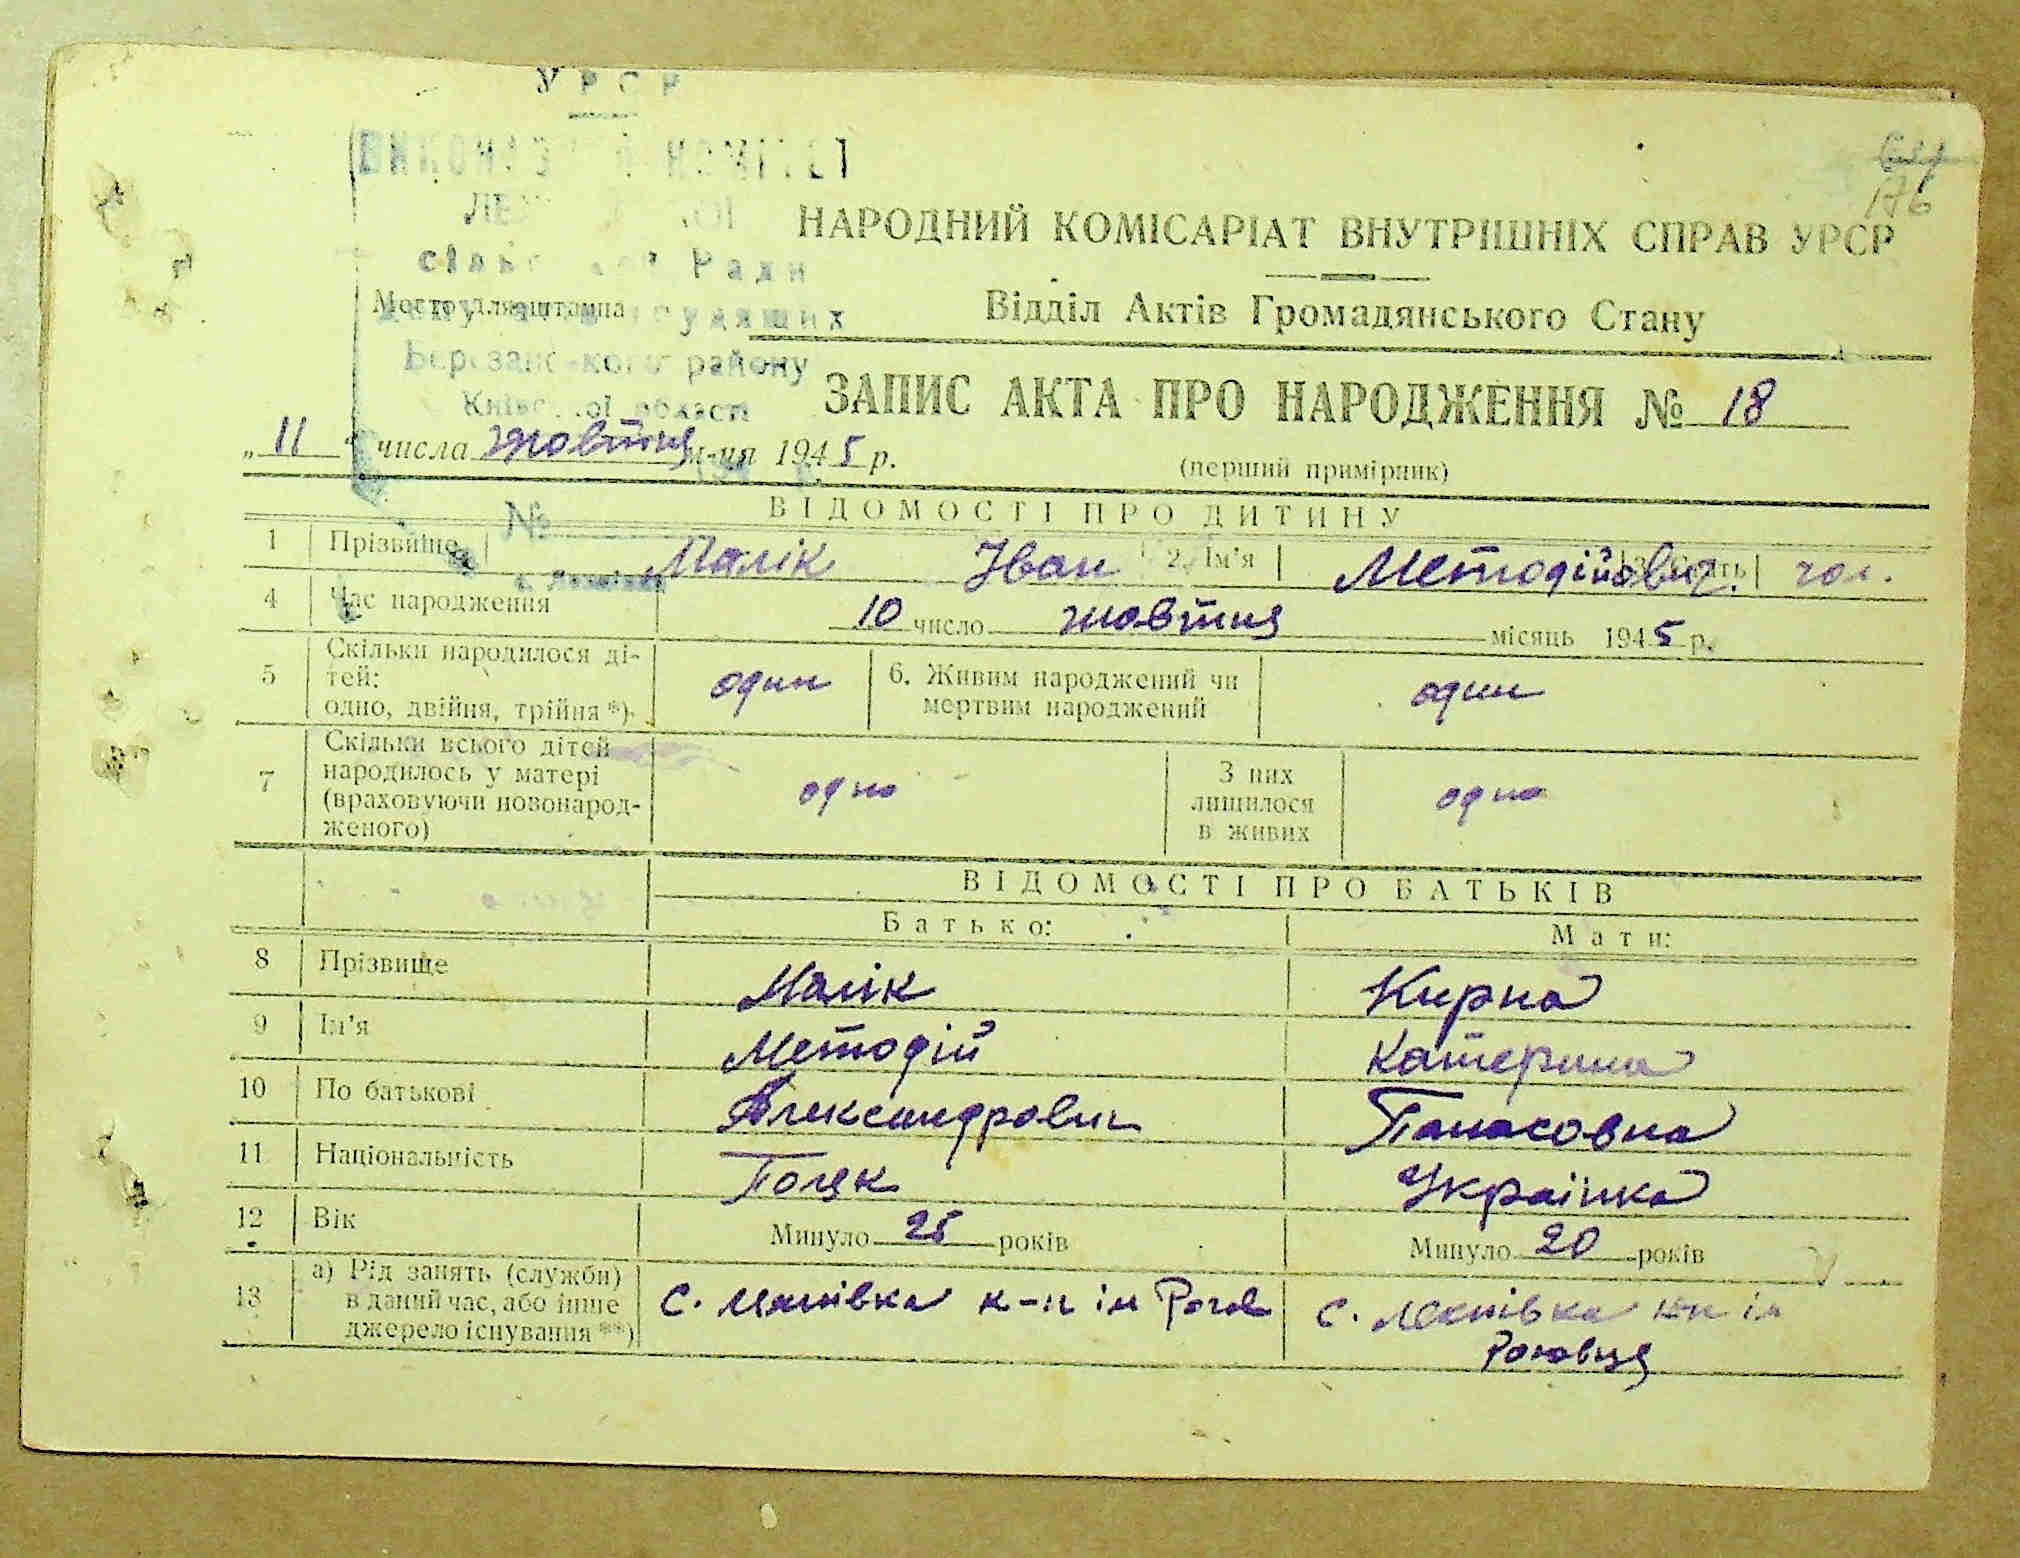 УРСР
ВИКОНАВЧИЙ КОМІТЕТ
сільської Ради
НАРОДНИЙ КОМІСАРІАТ ВНУТРІШНІХ СПРАВ УРСР
176
Место для штампа
Відділ Актів Громадянського Стану
Березанського району
Київської області
ЗАПИС АКТА ПРО НАРОДЖЕННЯ № 18
„11" числа жовтня м-ця 1945 р.
(перший примірник)
ВІДОМОСТІ ПРО ДИТИНУ
№
1 Прізвище Малік Іван 2. Ім'я Методійович 3. Стать чол.
4 Час народження 10 число жовтня місяць 1945 р.
5 Скільки народилося ді-
тей:
одно, двійня, трійня *)
один
6. Живим народжений чи
мертвим народжений
один
7 Скільки всього дітей
народилось у матері
(враховуючи новонарод-
женого)
одно
З них
лишилося
в живих
одно
ВІДОМОСТІ ПРО БАТЬКІВ
Батько: Мати:
8 Прізвище Малік Кирна
9 Ім'я Методій Катерина
10 По батькові Александрович Панасовна
11 Національність Поляк Українка
12 Вік Минуло 25 років Минуло 20 років
13 а) Рід занять (служби)
в даний час, або інше
джерело існування **)
с. к-п ім Рогов
с. к-п ім